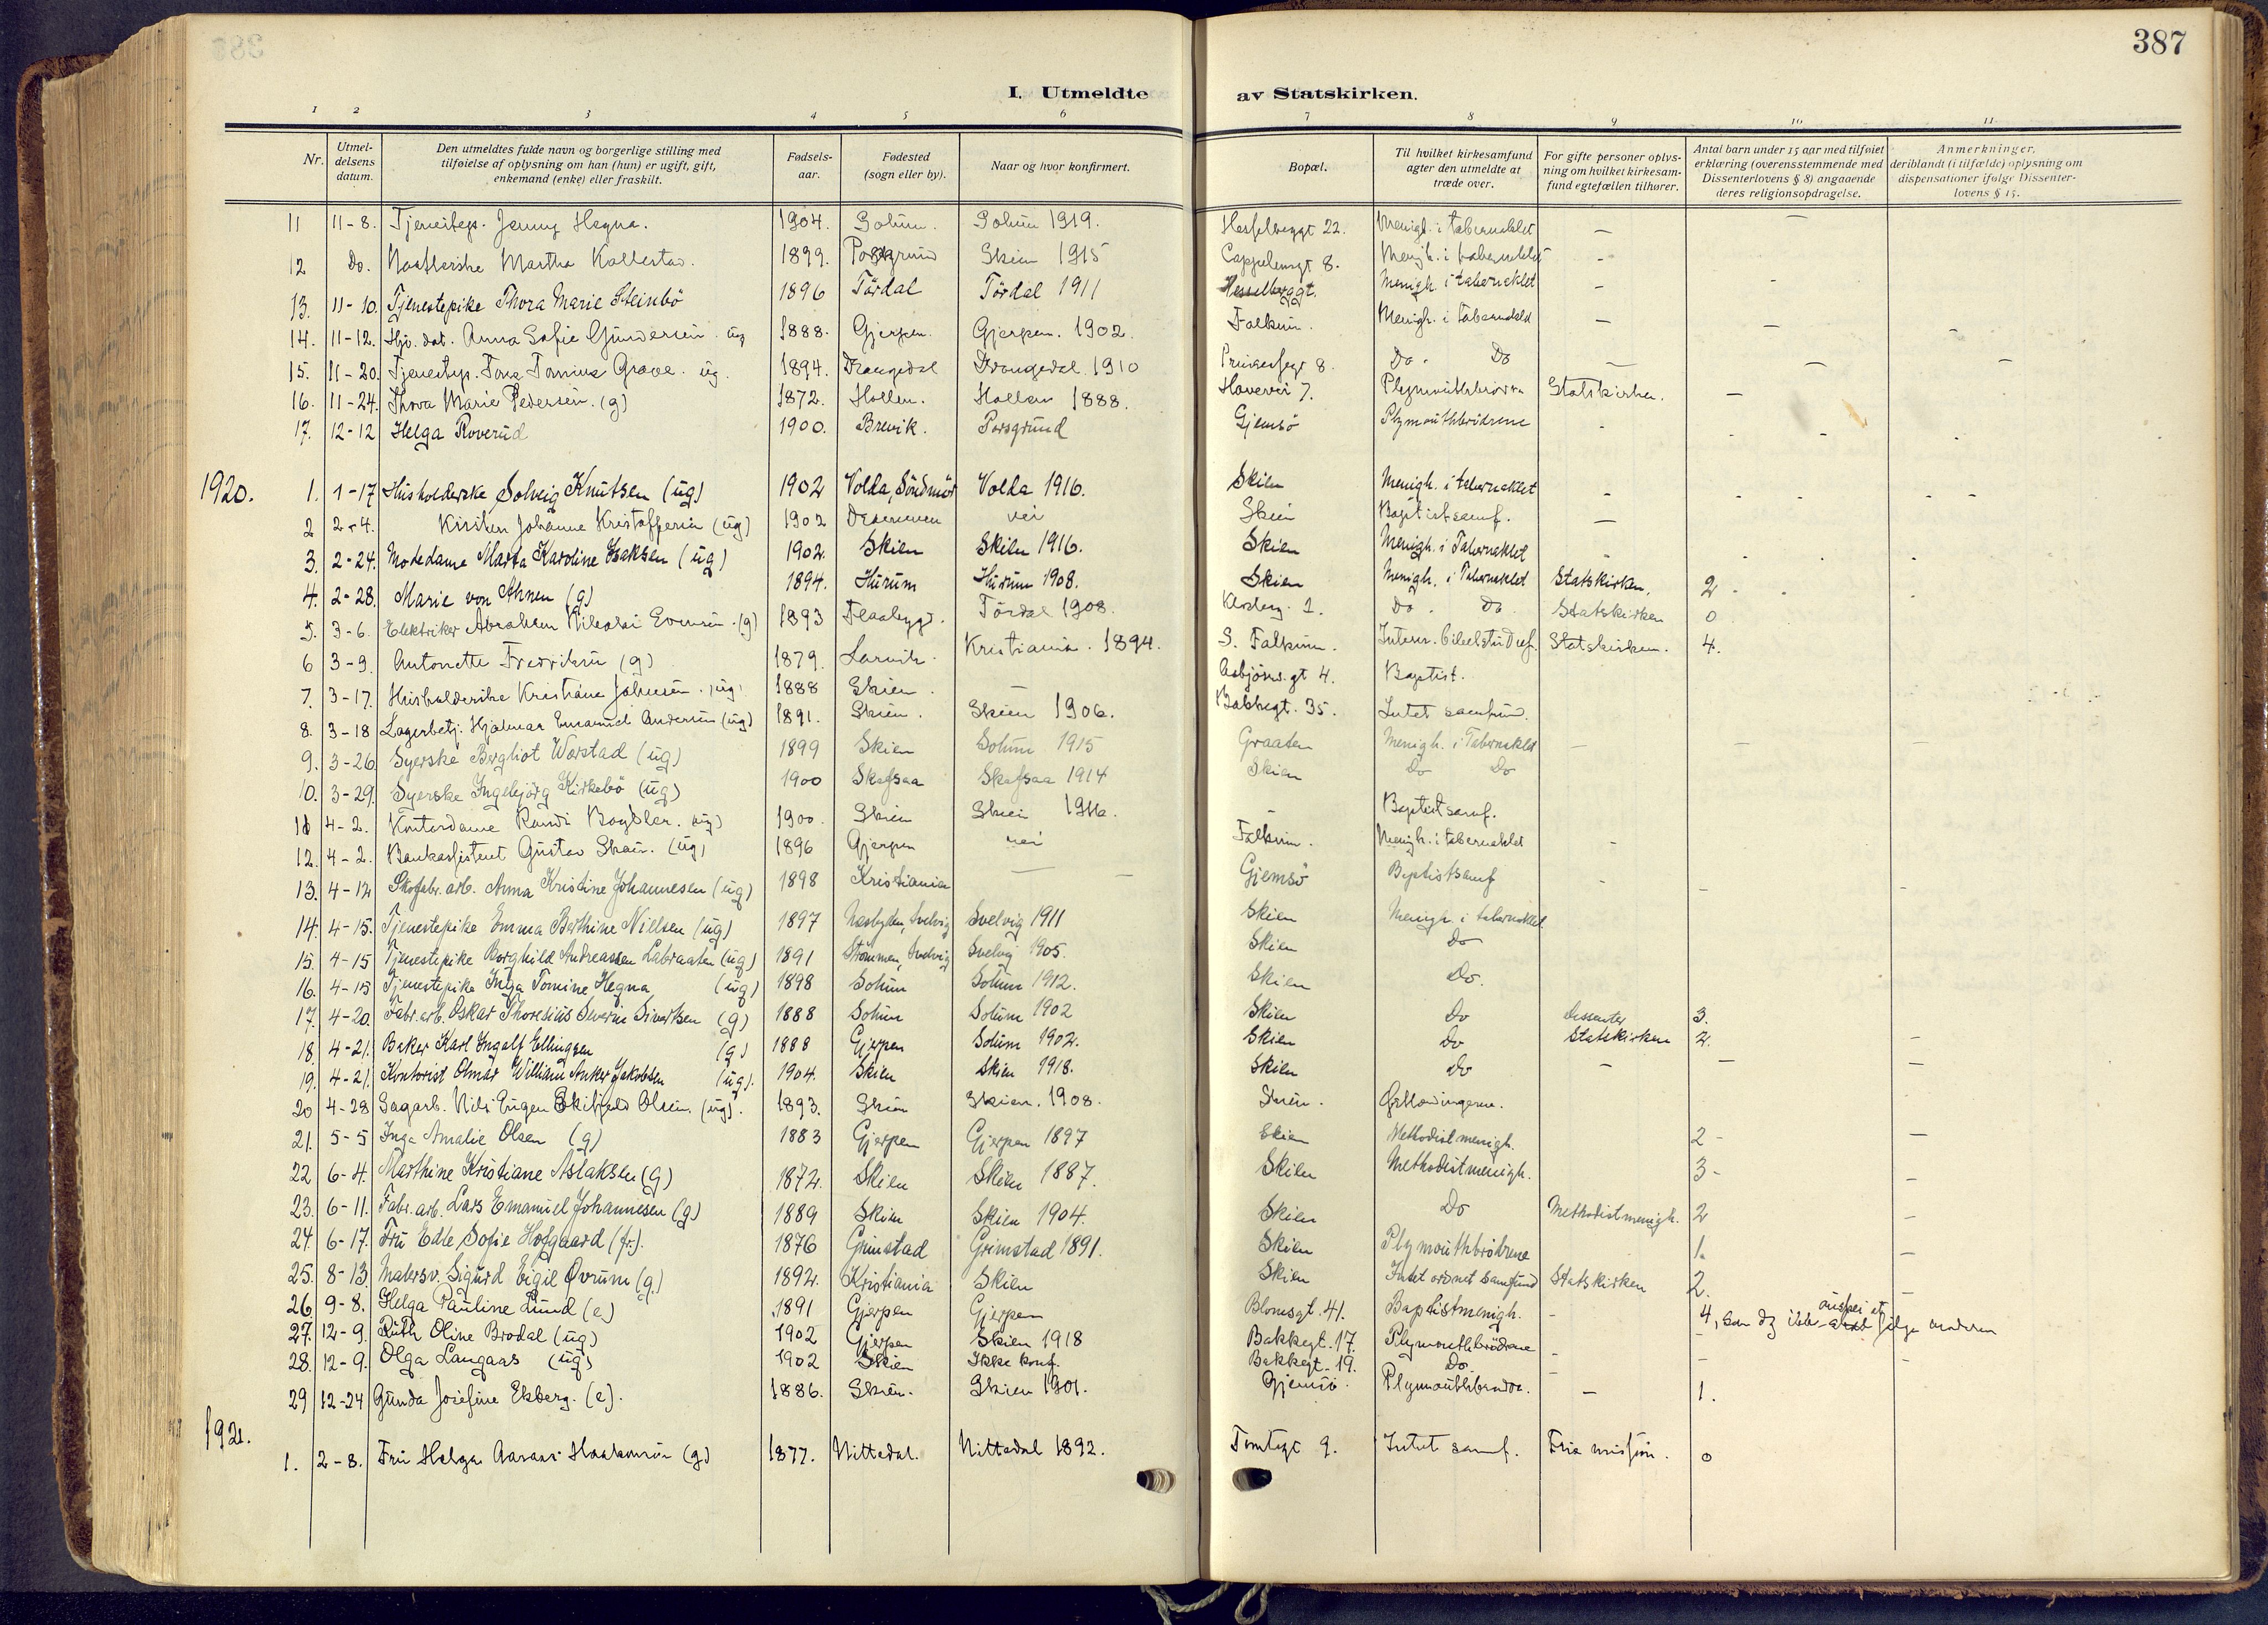 387
I. Utmeldte av Statskirken.
1 2 3 4 5 6 7 8 9 10 11
Nr.
Utmeldelsens datum.
Den utmeldtes fulde navn og borgerlige stilling med tilføielse af oplysning om han (hun) er ugift, gift, enkemand (enke) eller fraskilt.
Fødselsaar.
Fødested (sogn eller by).
Naar og hvor konfirmert.
Bopæl.
Til hvilket kirkesamfund agter den utmeldte at træde over.
For gifte personer oplysning om hvilket kirkesamfund egtefællen tilhører.
Antal barn under 15 aar med tilføiet erklæring (overensstemmende med Dissenterlovens § 8) angaaende deres religionsopdragelse.
Anmerkninger, deriblandt (i tilfælde) oplysning om dispensationer ifølge Dissenterlovens § 15.
11 11-8. Tjenestep. Jenny Hegna. 1904. Solum. Solum 1919. 22. Menigh. i tabernaklet — —
12 Do. Martha Kallestad. 1899. Porsgrund Skien 1915 Cappelensgt 8. Menigh. i tabernaklet -
13. 11-10. Tjenestepike Thora Marie Steinbö 1896 Tördal Tördal 1911 Hesselberggt. Menigh. i tabernaklet - -
14. 11-12. Hjv. dat. Anna Sofie Gundersen. ug 1888. Gjerpen. Gjerpen. 1902. Falkum. Menigh. i tabernaklet — — -
15. 11-20. Tjenestep. Tone Tomine Grave. ug. 1894. Drangedal Drangedal. 1910 Prinsessegt 8. Do. Do — — —
16. 11-24. Thora Marie Pedersen. (g) 1872. Hollen. Hollen 1888. Havevei 7. Plymouthbrödre Statskirken. —
17. 12-12 Helga Roverud 1900. Brevik. Porsgrund Gjemsö Plymouthbrödrene - - - -
1920. 1. 1-17 Husholderske Solveig Knutsen (ug) 1902 Volda, Söndmör Volda 1916. Skien Menigh. i tabernaklet - - - - -
2 2-4. Kirsten Johanne Kristoffersen (ug) 1902 nei Skien Baptistsamf. —
3. 2-24. Motedame Marta Karoline Isaksen (ug) 1902. Skien Skien 1916. Skien Menigh. i Tabernaklet - - -
4. 2-28. Marie von Ahnen (g) 1894. Hurum Hurum 1908. Skien Menigh. i Tabernaklet Statskirken. 2 - -
5. 3-6. Elektriker Abraham Nikolai Evensen. (g) 1893 Flaabygd. Tördal 1908. Klosterg. 1. Do. Do. Statskirken 0
6 3-9. Antonette Fredriksen (g) 1879. Larvik. Kristiania. 1894. S. Falkum. Intern. bibelstudef. Statskirken. 4.
7. 3-17. Husholderske Kristiane Johnsen. (ug) 1888 Skien. — Asbjörns.gt 4. Baptist.
8. 3-18 Lagerbetj. Hjalmar Emanuel Andersen (ug) 1891. Skien. Skien 1906. Bakkegt. 35. Intet samfund.
9. 3-26. Syerske Bergliot Worstad (ug) 1899 Skien Solum 1915 Graaten Menigh. i Tabernaklet — — —
10. 3-29. Syerske Ingebjörg Kirkebö (ug) 1900 Skafsaa Skafsaa 1914 Skien Do Do
11 4-2. Kontordame Randi (ug) 1900. Skien Skien 1916. - Baptistsamf.
12. 4-2. Bankassistent Gustav Skau. (ug) 1896 Gjerpen nei Falkum. Menigh. i tabernaklet -
13. 4-12 Skofabr. arb. Anna Kristine Johannesen (ug) 1898 Kristiania — — Gjemsö Baptistsamf - - -
14. 4-15. Tjenestepike Emma Berthine Nielsen (ug) 1897 Nesbygden, Svelvig Svelvig 1911 Skien Menigh. i tabernaklet
15. 4-15 Tjenestepike Borghild Andreassen Labraaten (ug) 1891 Strömmen, Svelvig Svelvig 1905. Skien Do
16. 4-15 Tjenestepike Inga Tomine Hegna (ug) 1898 Solum Solum 1912. Skien Do.
17. 4-20. Fabr. arb. Oskar Thoresius Severin Sivertsen (g) 1888 Solum Solum 1902 Skien Do dissenter 3.
18. 4-21. Baker Karl Ingolf Ellingsen (g) 1888 Gjerpen Solum 1902. Skien Do Statskirken 2. -
19. 4-21. Kontorist Olmar William Anker Jakobsen (ug). 1904. Skien Skien 1918. Skien Do - — -
20 4-28 Sagarb. Nils Eugen Olsen. (ug). 1893. Skien Skien. 1908. Skien.
21. 5-5 Inga Amalie Olsen (g) 1883 Gjerpen Gjerpen 1897 Skien Methodistmenigh. 2 - —
22 6-4. Marthine Kristiane Aslaksen (g) 1872. Skien Skien 1887. Skien Methodistmenigh. 3 - -
23. 6-11. Fabr. arb. Lars Emanuel Johannesen (g) 1889 Skien Skien 1904. Skien Do Methodistmenigh. 2 -
24. 6-17. Fru Edle Sofie Hofgaard (fr.). 1876 Grimstad Grimstad 1891. Skien Plymouthbrödrene - 1. -
25. 8-13. Malersv. Sigurd Eigil Qvrum (g.) 1892. Kristiania Skien Skien Intet ordnet samfund Statskirken 2. -
26 9-8. Helga Pauline Lund (e) 1891 Gjerpen Gjerpen Blomsgt. 41. Baptistmenigh. - 4, som dog ikke önskes at fölge moderen
27. 12-9. Ruth Oline Brodal (ug) 1902 Gjerpen Skien 1918 Bakkegt. 17. Plymouthbrödrene - -
28. 12-9. Olga Langaas (ug) 1902 Skien Ikke konf. Bakkegt. 19. Do - - -
29 12-24 Gunda Josefine Ekberg. (e). 1886. Skien. Skien 1901. Gjemsö. — 1.
1921.
1. 2-8. Fru Helga (g) 1877. Nittedal. Nittedal 1892. Tomtegt 9. Intet samf. Fria mission. 0